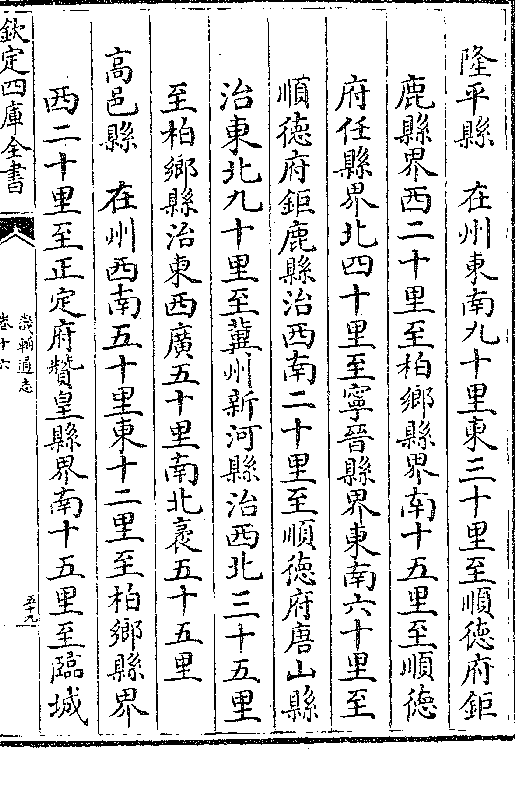 隆平縣　在州東南九十里東三十里至順德府鉅
鹿縣界西二十里至柏鄉縣界南十五里至順德
府任縣界北四十里至寧晉縣界東南六十里至
順德府鉅鹿縣治西南二十里至順德府唐山縣
治東北九十里至冀州新河縣治西北三十五里
至柏鄉縣治東西廣五十里南北袤五十五里
高邑縣　在州西南五十里東十二里至柏鄉縣界
西二十里至正定府贊皇縣界南十五里至臨城
欽定四庫全書
畿輔通志
卷十六
五十九